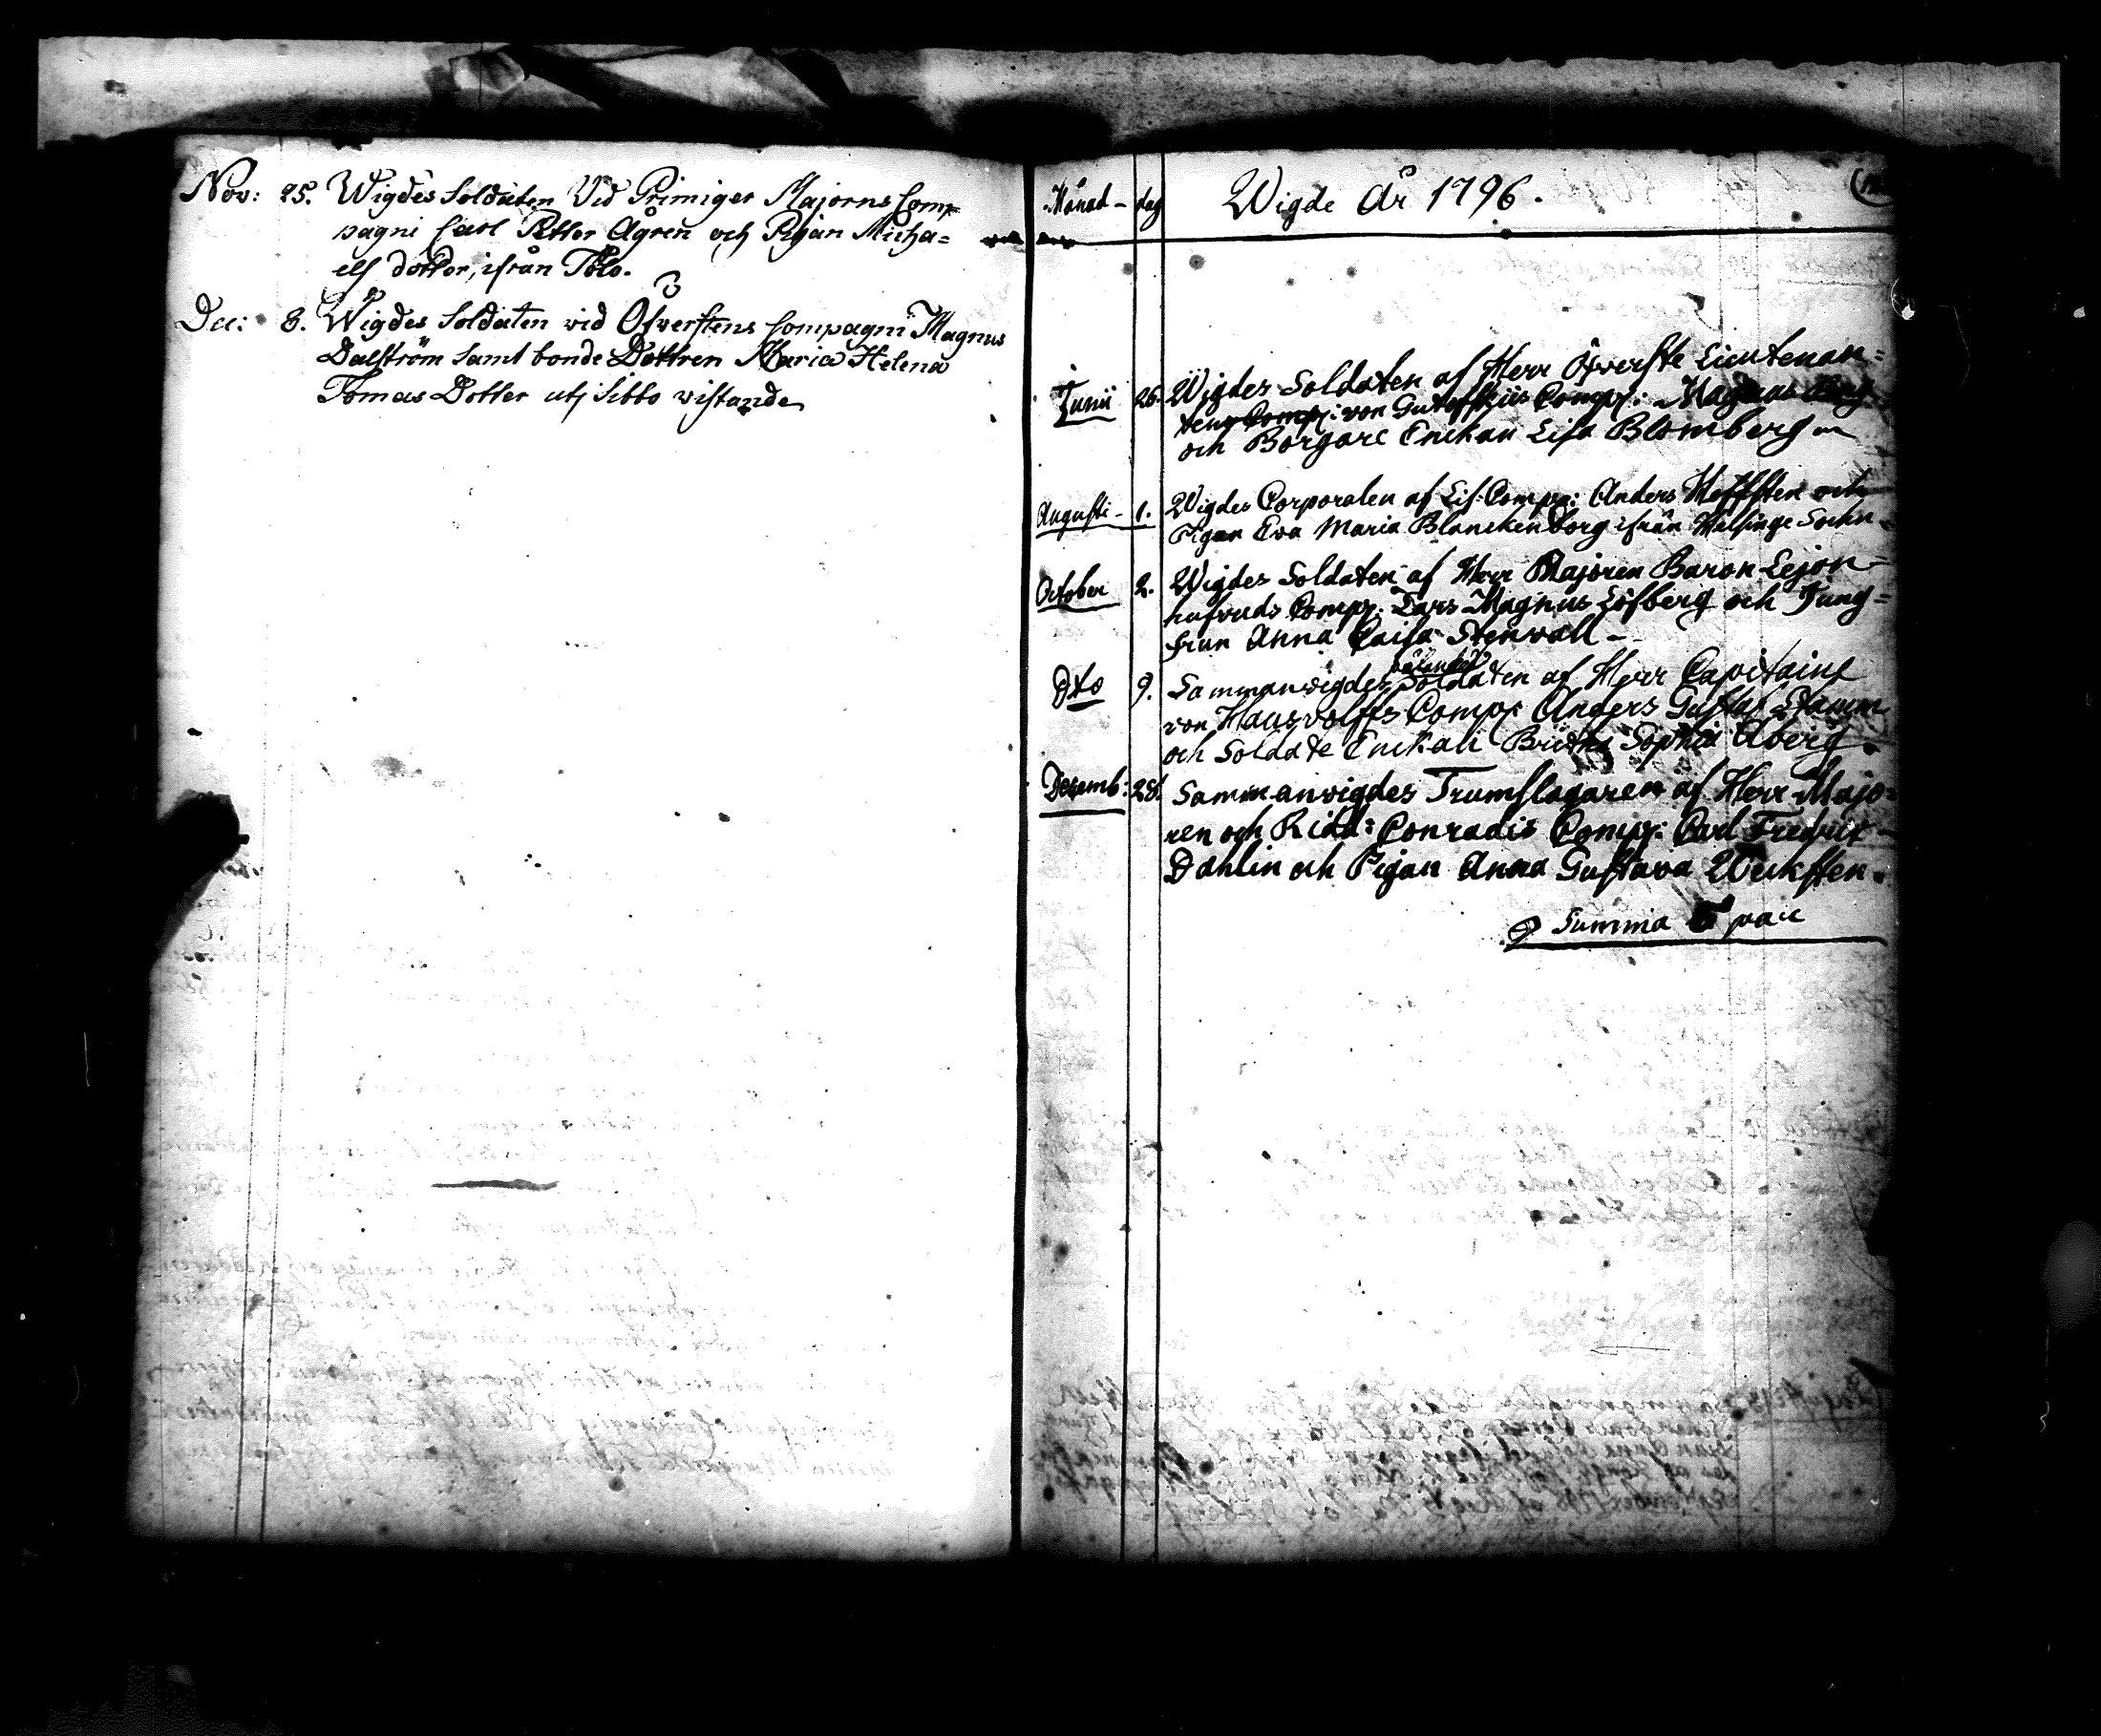 Nov: 25. Wigdes Soldaten Vid Primiger Majorns Com-
pagni Carl Petter Ågren och Pigan Micha=
els dotter, ifrån Tölö.
Dec: 8. Wigdes Soldaten vid Öfverstens Compagni Magnus
Dalström samt bonde Dottren Maria Helena
Tomas Dotter utj Sibbo vistande
Månad - dag Wigde År 1796.
Junii 26. Wigdes Soldaten af Herr Öfverste Lieutenan=
tens Comp: von Comp: Magnus
och Borgare Enckan Lisa Blomberg
Augusti - 1. Wigdes Corporalen af Lif-Comp: Anders Hoffsten och
Pigan Eva Maria Blanckenborg ifrån Helsinge Sockn
October 2. Wigdes Soldaten af Herr Majoren Baron Lejon=
hufvuds Comp: Lars Magnus Löfberg och Jung=
frun Anna Caisa Stenvall -
Dto 9. Sammanvigdes Soldaten af Herr Capitaine
von Hausvolffs Comp: Anders Gustaf Stamm
och Soldate Enckan Britha Sophia Åberg.
Decemb: 28. Sammanvigdes Trumslagaren af Herr Majo=
ren och Ridd: Conradis Comp: Carl Fredric
Dahlin och Pigan Anna Gustava Weksten.
Summa 5 par